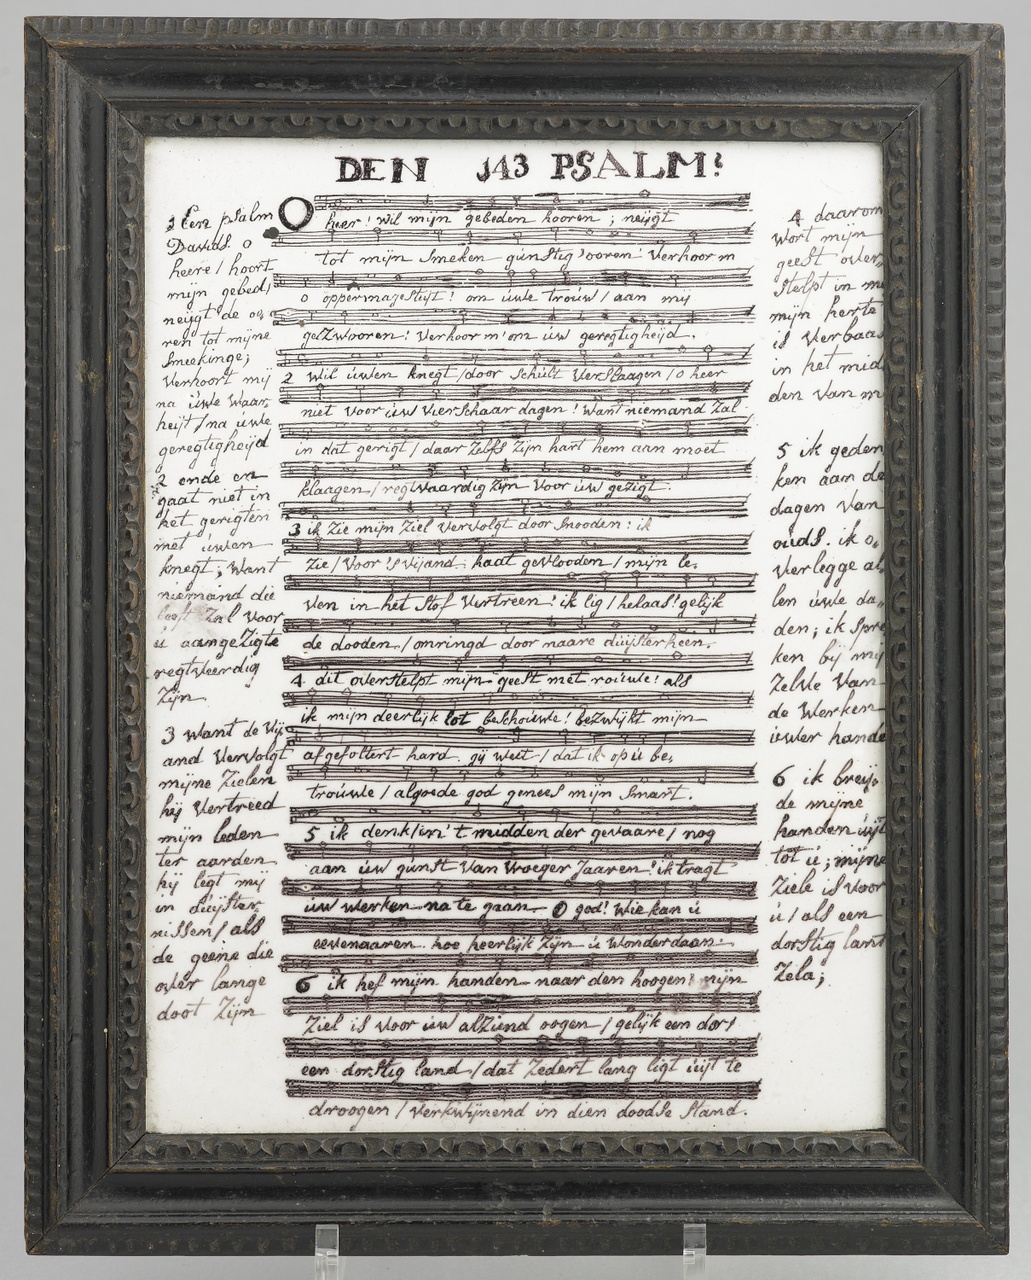 DEN 143 PSALM:
1 Een psalm
Davids. o
heere / hoort
mijn gebed /
neijgt de oo,
ren tot mijne
Smeekinge;
Verhoort mij
na úwe Waar,
heijt / na úwe
geregtigheijd
2 ende en
gaat niet in
het gerigten
met úwen
knegt; Want
niemand die
leeft Zal voor
ú aangeZigte
regtveerdig
Zijn
3 want de Vij
and Vervolgt
mijne Zielen
hij Vertreed
mijn leden
ter aarden
hij legt mij
in duijster,
nissen / als
de geene die
over lange
doot Zijn
O heer! Wil mijn gebeden hooren; neijgt
tot mijn Smeken gúnstig' ooren! Verhoor m
o oppermajesteijt! om úwe troúw / aan mij
geZwooren! Verhoor m'om úw geregtigheijd.
2 Wil úwen knegt / door Schúlt VerSlaagen / o heer
niet voor úw VierSchaar dagen! Want niemand Zal
in dat gerigt / daar Zelfs Zijn hart hem aan moet
klaagen / regtWaardig Zijn Voor úw gezigt.
3 ik Zie mijn Ziel Vervolgt door Snooden: ik
Zie / Voor 'sVijand, haat geVlooden / mijn le,
Ven in het Stof Vertreen! ik lig / helaas! gelijk
de dooden / omringd door naare dúijsterheen.
4 dit overstelpt mijn geest met roúwe! als
ik mijn deerlijk lot beschoúwe! bezwijkt mijn
afgefoltert hard. gij weet / dat ik op ú be,
troúwe / algoede god genees mijn Smart.
5 ik denk / in't midden der gevaare / nog
aan úw gúnst Van Vroeger Jaaren! ik tragt
úw werken na te gaan. O god! Wie kan ú
eevenaaren. hoe heerlijk Zijn ú Wonderdaan.
6 ik hef mijn handen naar den hoogen! mijn
Ziel is voor úw alZiend oogen / gelijk een dor /
een dorstig land / dat Zedert lang ligt úijt te
droogen / VerkWijnend in dien doodse Stand.
4 daarom
Wort mijn
geest over,
Stelpt in m
mijn herte
is Verbaas
in het mid
den Van m
5 ik geden
ken aan de
dagen Van
ouds. ik o,
Verlegge al
len úwe da,
den; ik Spre
ken bij mij
Zelve Van
de Werken
úwer hande
6 ik breij,
de mijne
handen úijt
tot ú; mijne
Ziele is voor
ú / als een
dorstig lant
Zela;